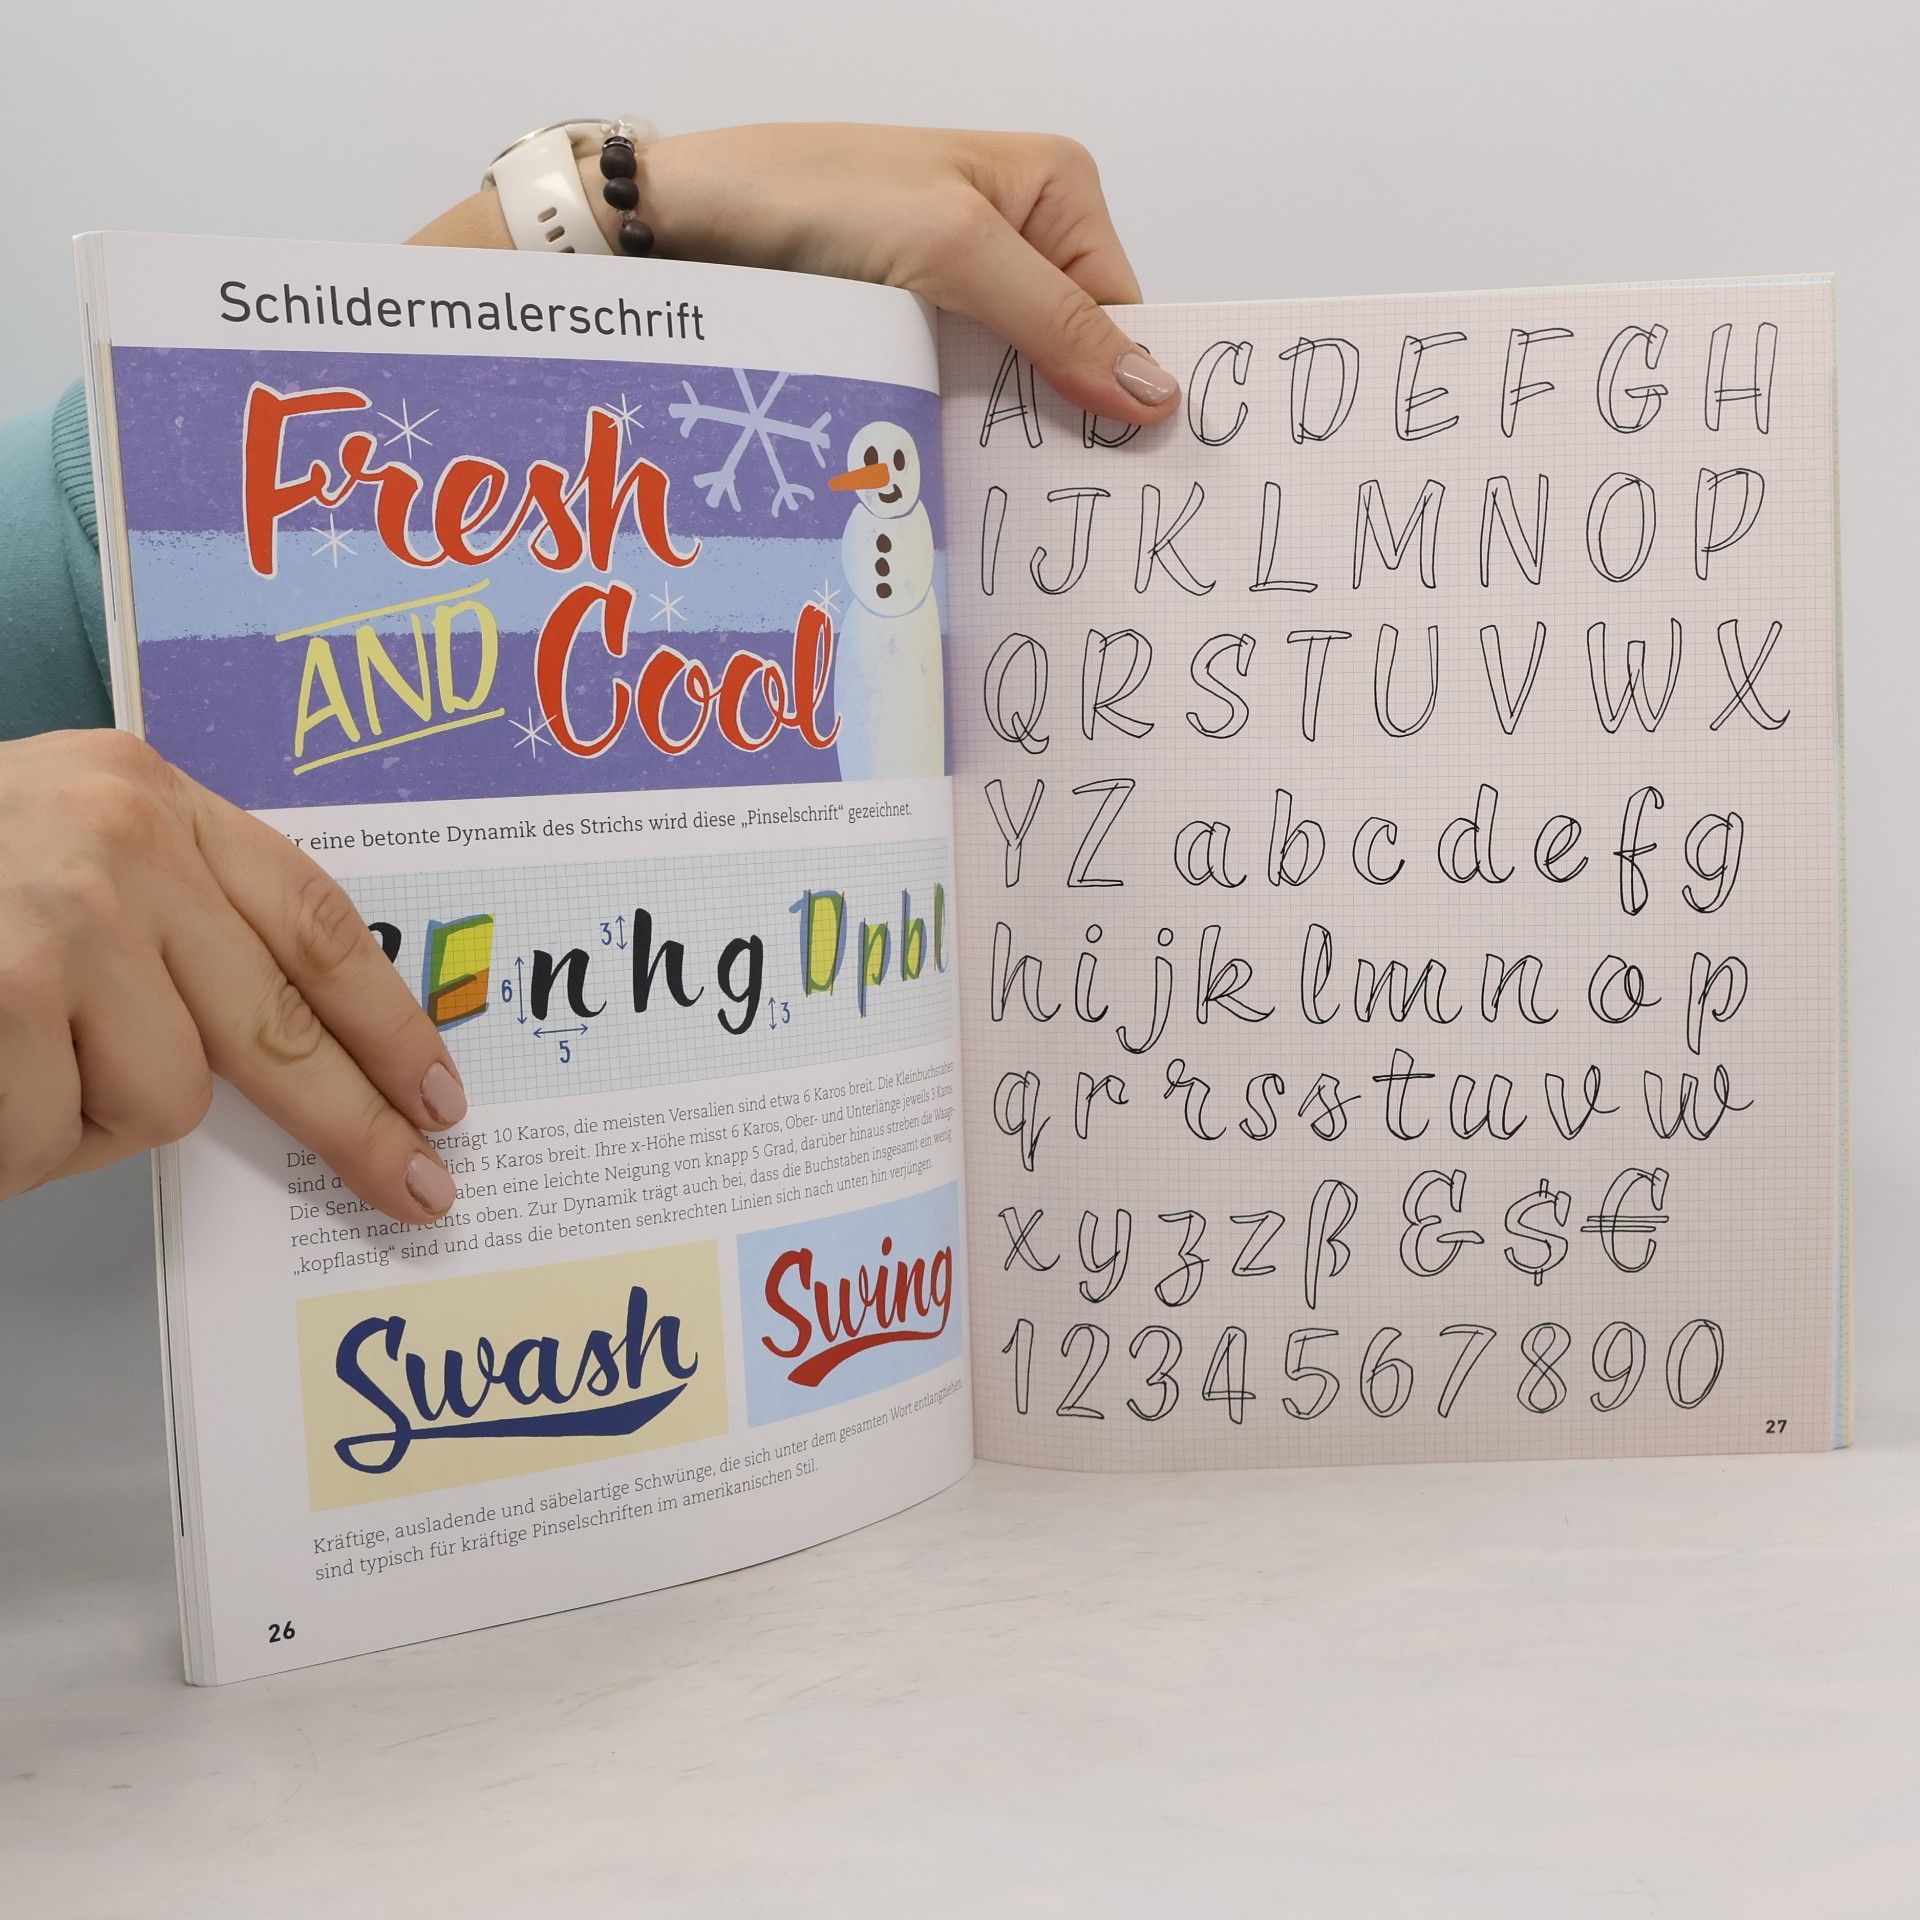 Schildermalerschrift
Fresh
AND Cool
eine betonte Dynamik des Strichs wird diese „Pinselschrift“ gezeichnet.
n h g D p b l
3
6
3
5
Die beträgt 10 Karos, die meisten Versalien sind etwa 6 Karos breit. Die Kleinbuchstaben
sind 5 Karos breit. Ihre x-Höhe misst 6 Karos, Ober- und Unterlänge jeweils 3 Karos.
Die eine leichte Neigung von knapp 5 Grad, darüber hinaus streben die Waage-
rechten nach rechts oben. Zur Dynamik trägt auch bei, dass die Buchstaben insgesamt ein wenig
„kopflastig“ sind und dass die betonten senkrechten Linien sich nach unten hin verjüngen.
Swash
Swing
Kräftige, ausladende und säbelartige Schwünge, die sich unter dem gesamten Wort entlangziehen,
sind typisch für kräftige Pinselschriften im amerikanischen Stil.
26
A B C D E F G H
I J K L M N O P
Q R S T U V W X
Y Z a b c d e f g
h i j k l m n o p
q r r s s t u v w
x y z z ß & $ €
1 2 3 4 5 6 7 8 9 0
27